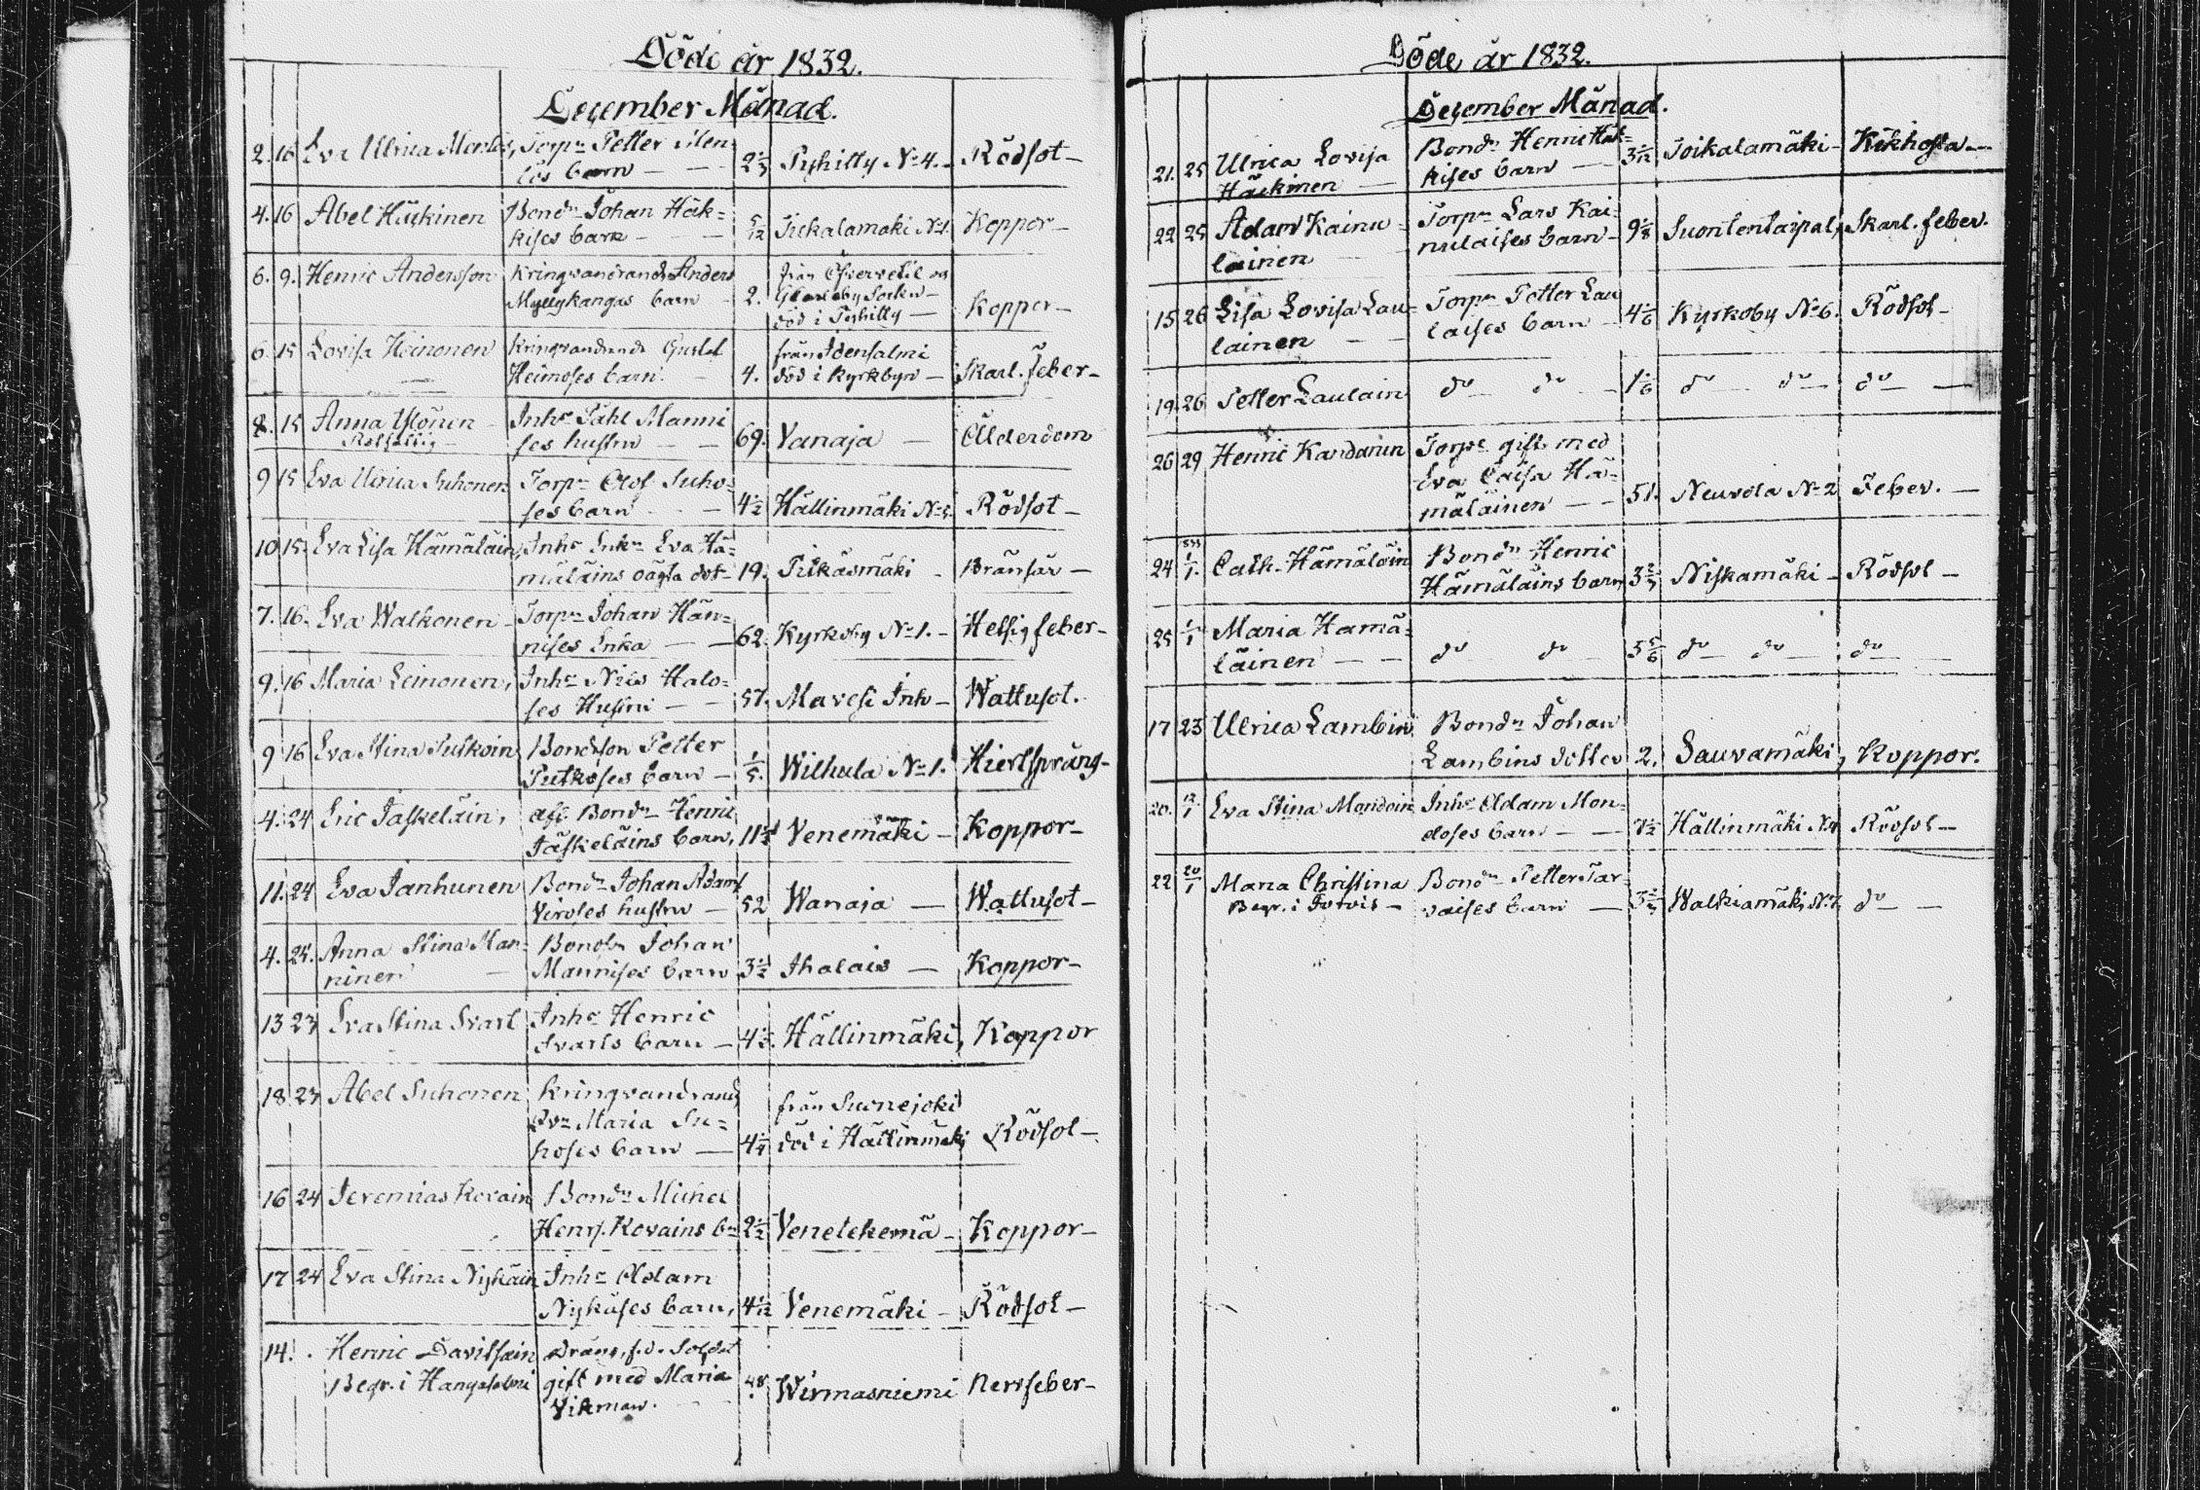 Döde år 1832.
December Månad.
2. 16 Eva Ulrica Torpn Petter Men
lös barn — 2 2/3 Pyhilly No 4. — Rödsot —
4. 16 Abel Häckinen Bondn Johan Häk=
kises barn — 5/12 No 1. Koppor —
6. 9. Henric Andersson Kringvandrande Anders
Myllykangas barn — 2. från och
Socken —
död i Pyhilly — Koppor —
6. 15 Lovisa Heinonen Kringvandrande Gustaf
Heinoses barn — 4. från Idensalmi
död i Kyrkbyn — Skarl. feber —
8. 15 Anna Ylönen — Inhs Påhl Manni
Rotfattig — ses hustru — 69. Vanaja — Ålderdom
9 15 Eva Ulrica Suhonen Torpn Olof Suho=
ses barn — 4 1/2 Hällinmäki No Rödsot —
10 15 Eva Lisa Hämäläin, Inhs Enkn Eva Hä=
mäläins oägta dot — 19. Pitkäsmäki — Bränsår —
7. 16. Eva Walkonen — Torpn Johan Hän=
nises Enka — 62. Kyrkoby No 1. — Hetsig feber —
9. 16 Maria Leinonen, Inhs Nils Halo=
ses Hustru — 57. Mavesi Inh — Wattusot.
9 16 Eva Stina Putkoin Bondson Petter
Putkoses barn — 1/5. Wilhula No 1. Hiertsprång —
4. 24 Eric Jäskeläin, afl. Bondn Henric
Jäskeläins barn, 11 1/2 Venemäki — Koppor —
11. 24 Eva Janhunen Bondn Johan Adamss
Viroles hustru — 52 Wanaja — Wattusot —
4. 24. Anna Stina Man= Bondsn Johan
ninen — Mannises barn 3 1/2 Ihalais — Koppor —
13 23 Eva Stina Svart Inhs Henric
Svarts barn — 4 1/2. Hällinmäki, Koppor
18 23 Abel Suhonen Kringvandrande
Qvn Maria Su=
hoses barn — 4 1/4 från
död i Hällinmäki Rödsot —
16 24 Jeremias Korain Bondn Michel
Henrs. Korains bn 2 1/2 Venetekemä — Koppor —
17 24 Eva Stina Nykäin Inhs Adam
Nykäses barn, 4 1/12 Venemäki — Rödsot —
14. Henric Davitsain Dräng, f.d. Soldat
Begr. i Hangasalmi gift med Maria 48. Wirmasniemi Nervfeber —
Vikman. —
Döde år 1832.
December Månad.
21. 25 Ulrica Lovisa Bondn Henric Häk=
Häckinen — kises barn — 3 1/12 Toikalamäki — Kikhosta —
22 25 Adam Kainu= Torpn Lars Kai=
lainen — nulaises barn — 9 1/8 Suontentaipal, Skarl. feber.
15 26 Lisa Lovisa Lau= Torpn Petter Lau
lainen — laises barn — 4 1/6 Kyrkoby No 6. Rödsot —
19. 26 Petter Laulain do do — 1 1/6 do — do — do —
26 29 Henric Kandanin Torpn gift med
Eva Caisa Hä=
mäläinen — 51. Neuvola No 2 Feber. —
24 1/1. Cath. Hämäläin Bondn Henric
Hämäläins barn 3 2/3 Niskamäki — Rödsot —
25 1/1 Maria Hämä=
läinen — do do — 5 5/6 do — do — do —
17 23 Ulrica Lambin Bondn Johan
Lambins dotter 2. Sauvamäki, Koppor.
20. Eva Stina Mondoin Inhs Adam Mon=
doses barn — 7 1/2 Hällinmäki No 4 Rödsot —
22 20/1 Maria Christina Bondn Petter Tar
Begr. i Jotvis — vaises barn — 3 2/3 Walkiamäki, No 7, do —